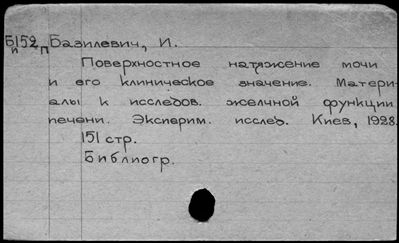 Би152п Базилевич, И.
Поверхностное натяжение мочи
и его клиническое значение. Матери-
алы к исследов. желчной функции
печени. Эксперим. исслед. Киев, 1928.
151 стр.
Библиогр.